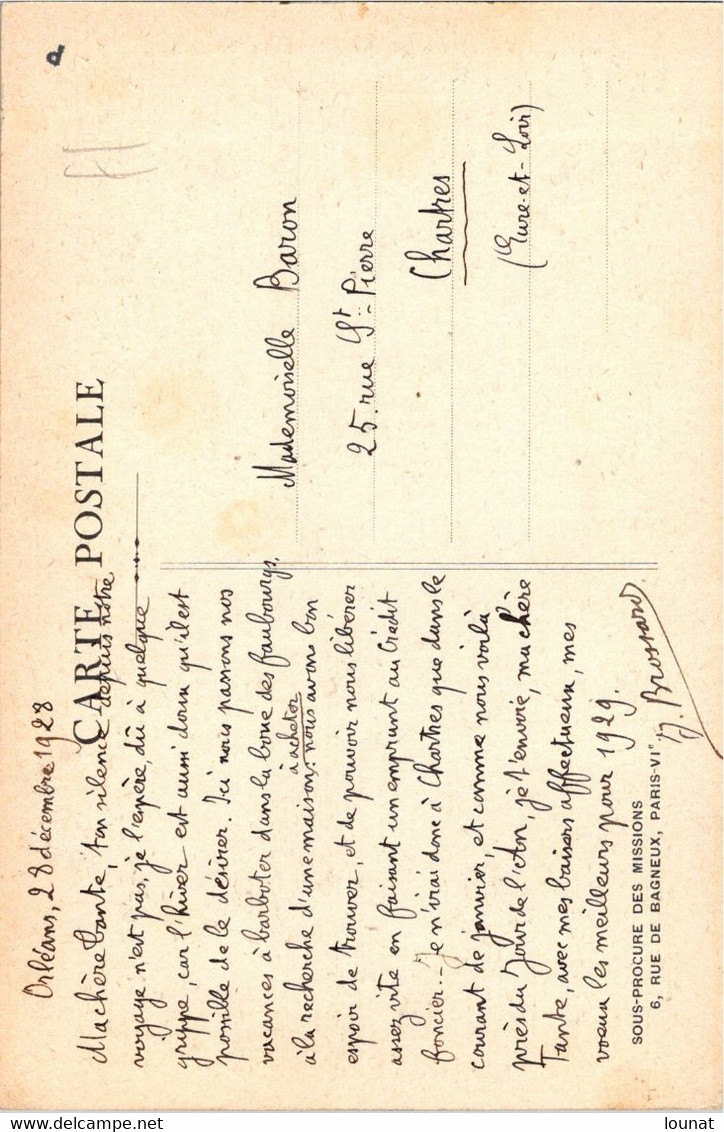 Orléans, 28 décembre 1928
CARTE POSTALE
Ma chère tante, ton silence depuis notre
voyage n'est pas, je l'espère, dû à quelque
grippe, car l'hiver est aussi doux qu'il est
possible de le désirer. Ici nous passons nos
vacances à barboter dans la boue des faubourgs,
à la recherche d'une maison à acheter: nous avons bon
espoir de trouver, et de pouvoir nous libérer
assez vite en faisant un emprunt au Crédit
foncier. - Je n'irai donc à Chartres que dans le
courant de janvier, et comme nous voilà
près du Jour de l'An, je t'envoie, ma chère
Tante, avec mes baisers affectueux, mes
voeux les meilleurs pour 1929.
J. Brossard
SOUS-PROCURE DES MISSIONS
6, RUE DE BAGNEUX, PARIS-VIe
Mademoiselle Baron
25 rue St-Pierre
Chartres
(Eure-et-Loir)
lounat